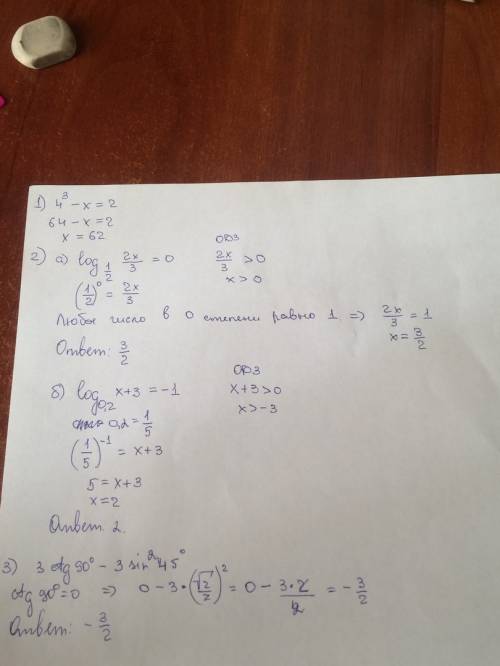 1) 4³ - x = 2
64 - x = 2
x = 62
2) а) log_{1/2} 2x/3 = 0 ОДЗ 2x/3 > 0
(1/2)⁰ = 2x/3 x > 0
Любое число в 0 степени равно 1 => 2x/3 = 1
Ответ: 3/2 x = 3/2
б) log_{0,2} x+3 = -1 ОДЗ x+3>0
0,2 = 1/5 x>-3
(1/5)⁻¹ = x+3
5 = x+3
x = 2
Ответ. 2.
3) 3 ctg 90° - 3 sin² 45°
ctg 90° = 0 => 0 - 3 · (√2/2)² = 0 - 3·2/4 = -3/2
Ответ: -3/2